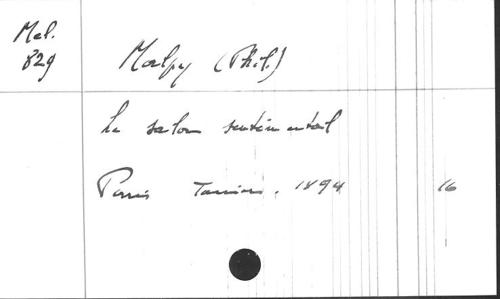 Mel.
829
Malpy (Phil.)
Le salon sentimental
Paris Tarride. 1894 16